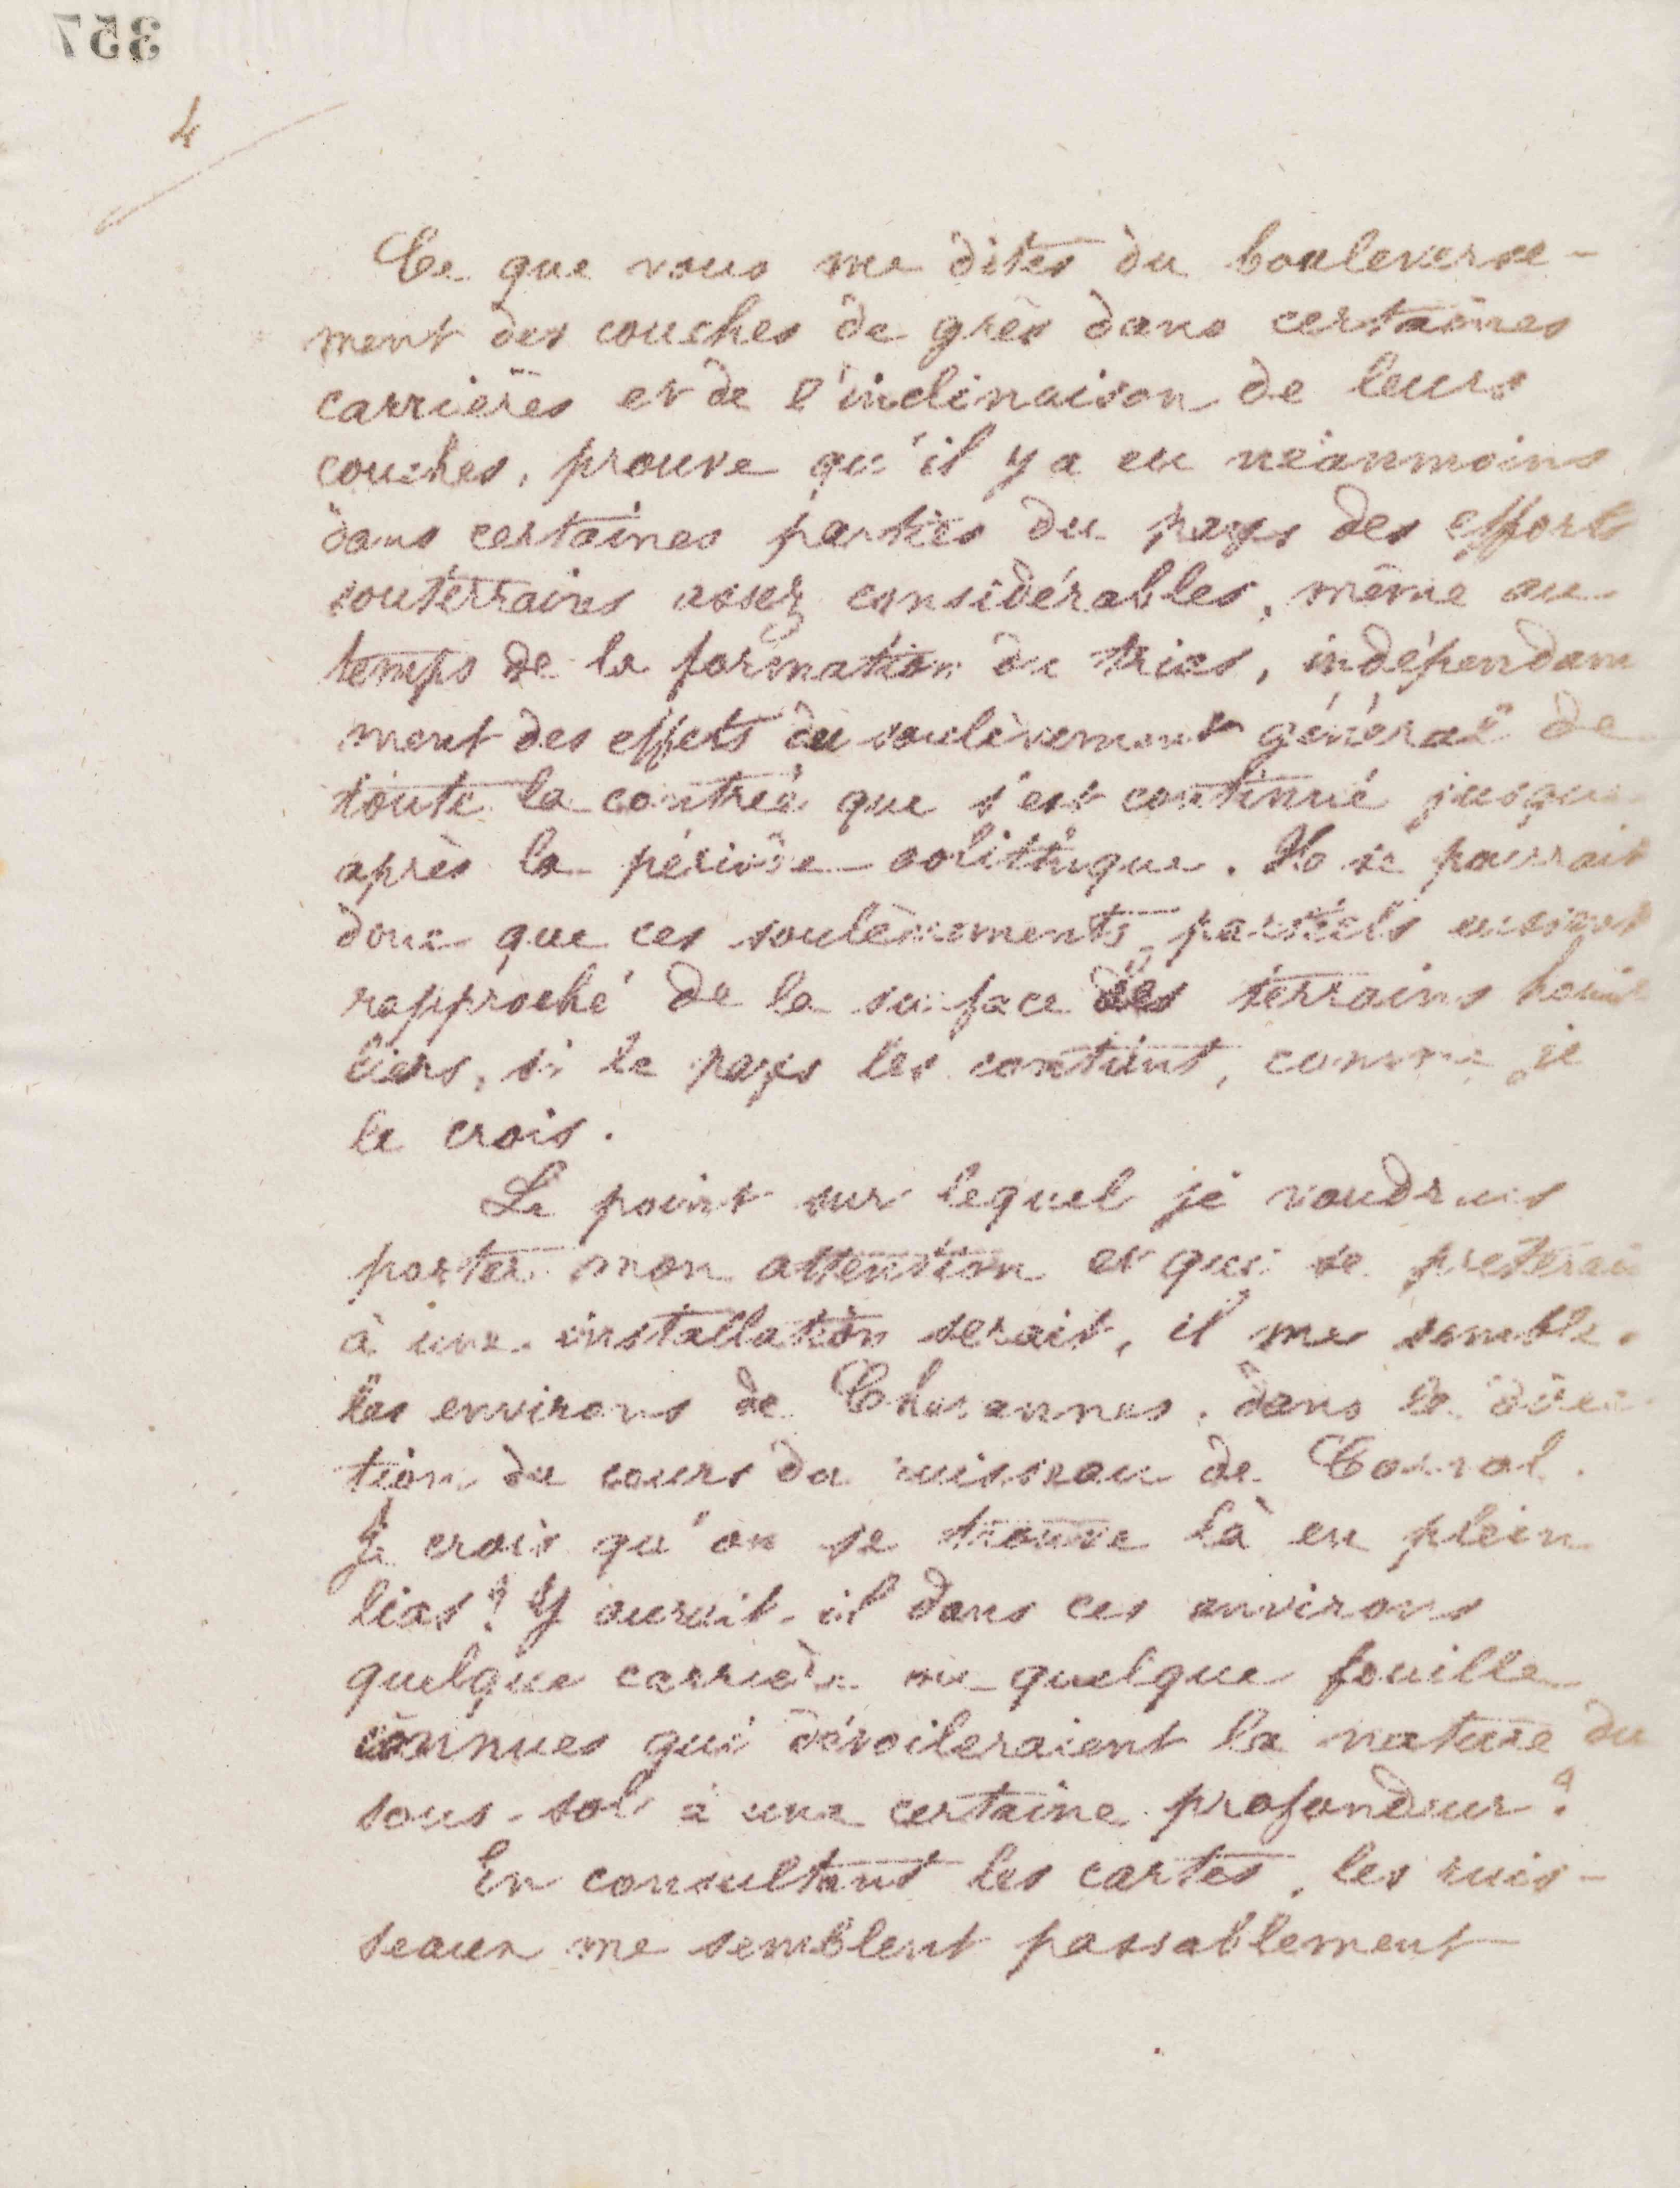 357
4
Ce que vous me dites du bouleverse-
ment des couches de grès dans certaines
carrières et de l'inclinaison de leurs
couches, prouve qu'il y a eu néanmoins
dans certaines parties du pays des efforts
souterrains assez considérables, même au
temps de la formation du trias, indépendam
ment des effets du soulèvement général de
toute la contrée que s'est continué jusque
après la période oolithique. Il se pourrait
donc que ces soulèvements partiels eussent
rapproché de la surface des terrains houil
liers, si le pays les contient, comme je
le crois.
Le point sur lequel je voudrais
porter mon attention et qui se prêterait
à une installation serait, il me semble,
les environs de dans la direc
tion du cours du ruisseau de
Je crois qu'on se trouve là en plein
lias? Y aurait-il dans ces environs
quelque carrière ou quelque fouille
connues qui dévoileraient la nature du
sous-sol à une certaine profondeur?
En consultant les cartes, les ruis-
seaux me semblent passablement